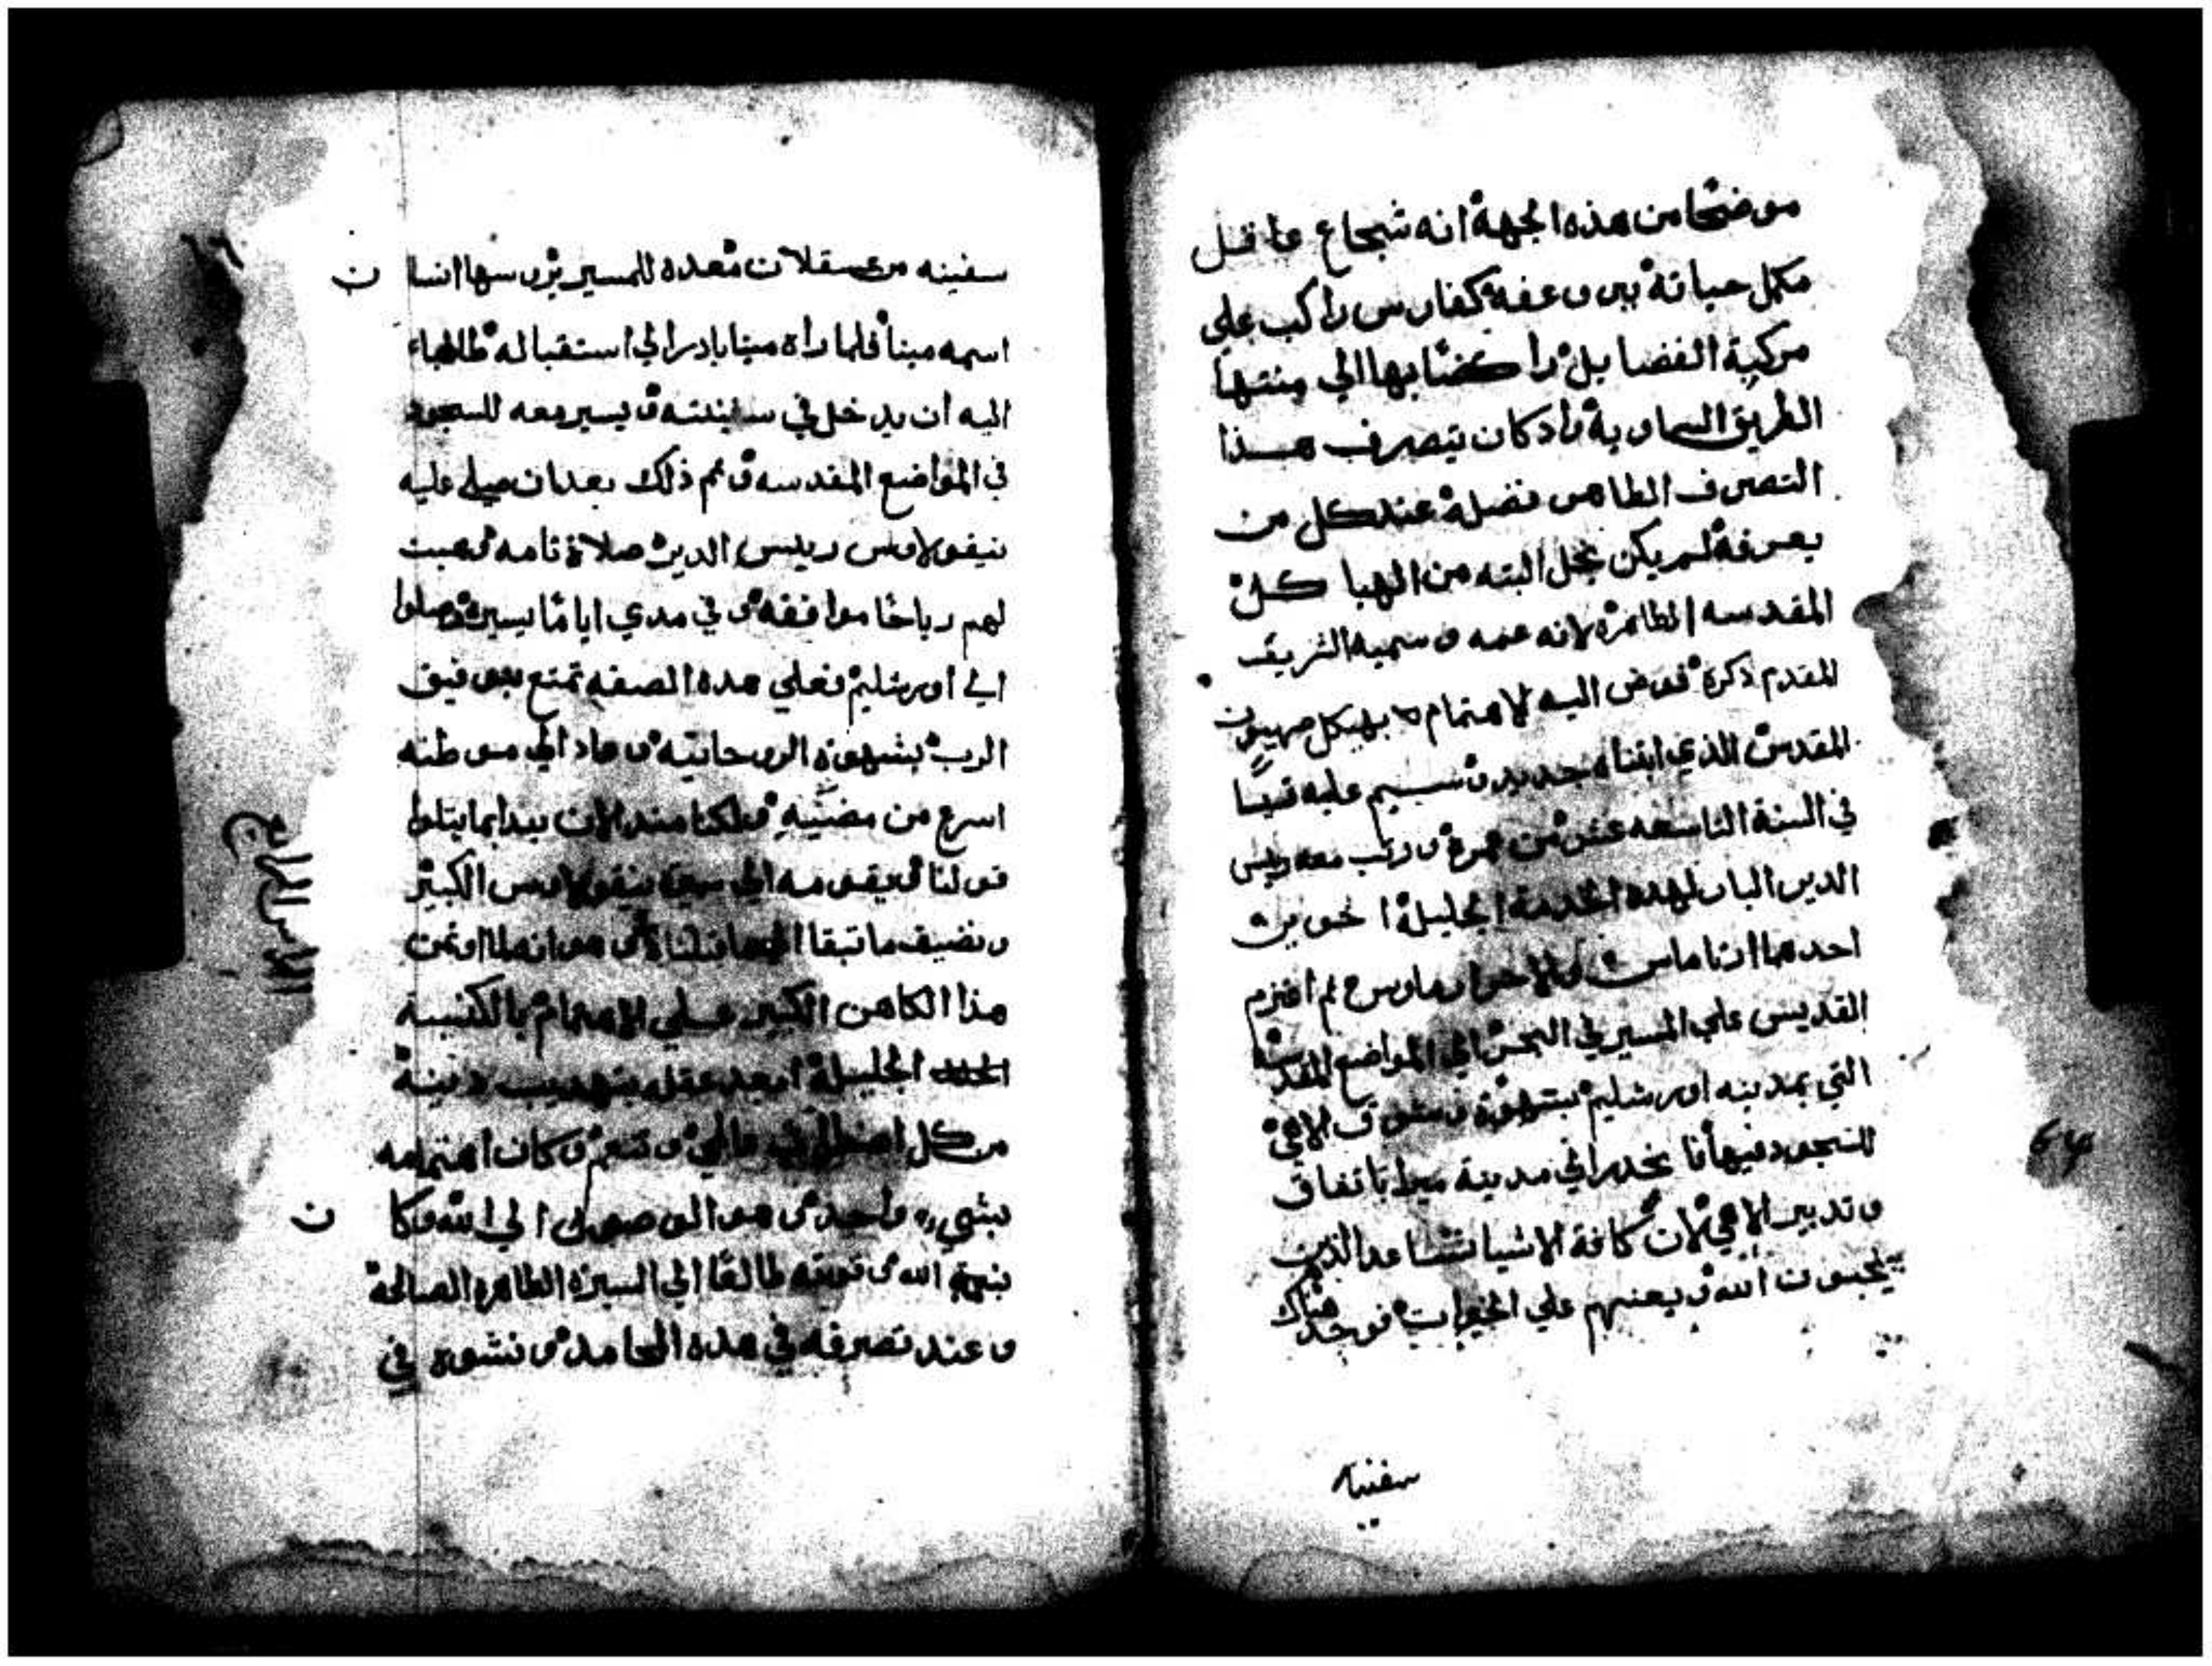 موضحًا من هذه الجهة انه شجاع عاقل
مكمل حياته ببر وعفة كفارس راكب علي
مركبة الفضايل راكضًا بها الي منتها
الطريق السماوية واد كان يتصرف هذا
التصرف الطاهر فضله عند كل من
يعرفه لم يكن يخل البته من الهيا كل
المقدسه الطاهرة لانه عمه وسميه الشريف
المقدم ذكرة فوض اليه الاهتمام بهيكل صهيون
المقدس الذي ابتناه جديد وسيم عليه قسًا
في السنة التاسعه عشر من عمرة ورتب معه رييس
الدير البار لهده الخدمة الجليلة اخوين
احدهما ارتاماس والاخر ارماوس ثم اعتزم
القديس علي المسير في البحر الي المواضع المقدسه
التي بمدينه اورشليم بشهوة وشوق الاهي
للسجود فيها فانحدر الي مدينة ميرا باتفاق
وتدبير الاهي لان كافة الاشيا تساعد الذين
يحبون الله ويعنهم علي الخيرات فوجد هناك
سفينه
سفينه من عسقلان معده للمسير يروسها انسان
اسمه مينا فلما راة مينا بادر الي استقباله طالبا
اليه ان يدخل في سفينته ويسير معه للسجود
في المواضع المقدسه وتم ذلك بعد ان صلي عليه
نيقولاوس رييس الدير صلاة تامه وهبت
لهم رياحًا موافقه وفي مدي ايامًا يسيرة وصلوا
الي اورشليم فعلي هده الصفه تمتع بتوفيق
الرب بشهوته الروحانيه وعاد الي موطنه
اسرع من مضيه ولكنا مند الان نبدا بما يتلوا
قولنا ونقومه الي سيرة نيقولاوس الكبير
ونضيف ما تبقا الي ما قلناه وهو انه لما اوتمن
هذا الكاهن الكبير علي الاهتمام بالكنيسة
الجليلة ابعد عقله بتهديب دينه
من كل اضطراب عالمي وتنعم وكان اهتمامه
بشيء واحد وهو الوصول الي الله وكان
بنعمة الله وقوته طالعًا الي السيرة الطاهره الصالحة
وعند تصرفه في هده المحامد ونشوه في